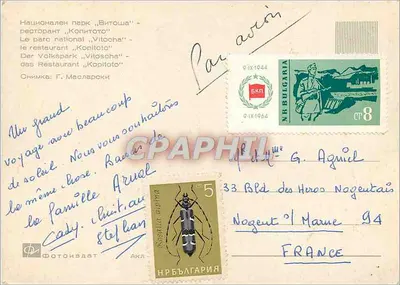 Национален парк „Витоша" -
ресторант „Копитото"
Le parc national „Vitocha" -
le restaurant „Kopitoto"
Der Volkspark „Vitoscha" -
das Restaurant „Kopitoto"
Снимка: Г. Масларски
Par avion
9 IX 1944
БКП
9 IX 1964
N.R. BULGARIA
СТ 8
CPARAMA
Un grand
voyage avec beaucoup
de soleil. Nous vous souhaitons
la même chose.
la Famille Arnal
Stephan
G. Agniel
33 Bld des Heros Nogentais
Nogent s/ Marne 94
FRANCE
5
Rosalia alpina
НР БЪЛГАРИЯ
Фотоиздат